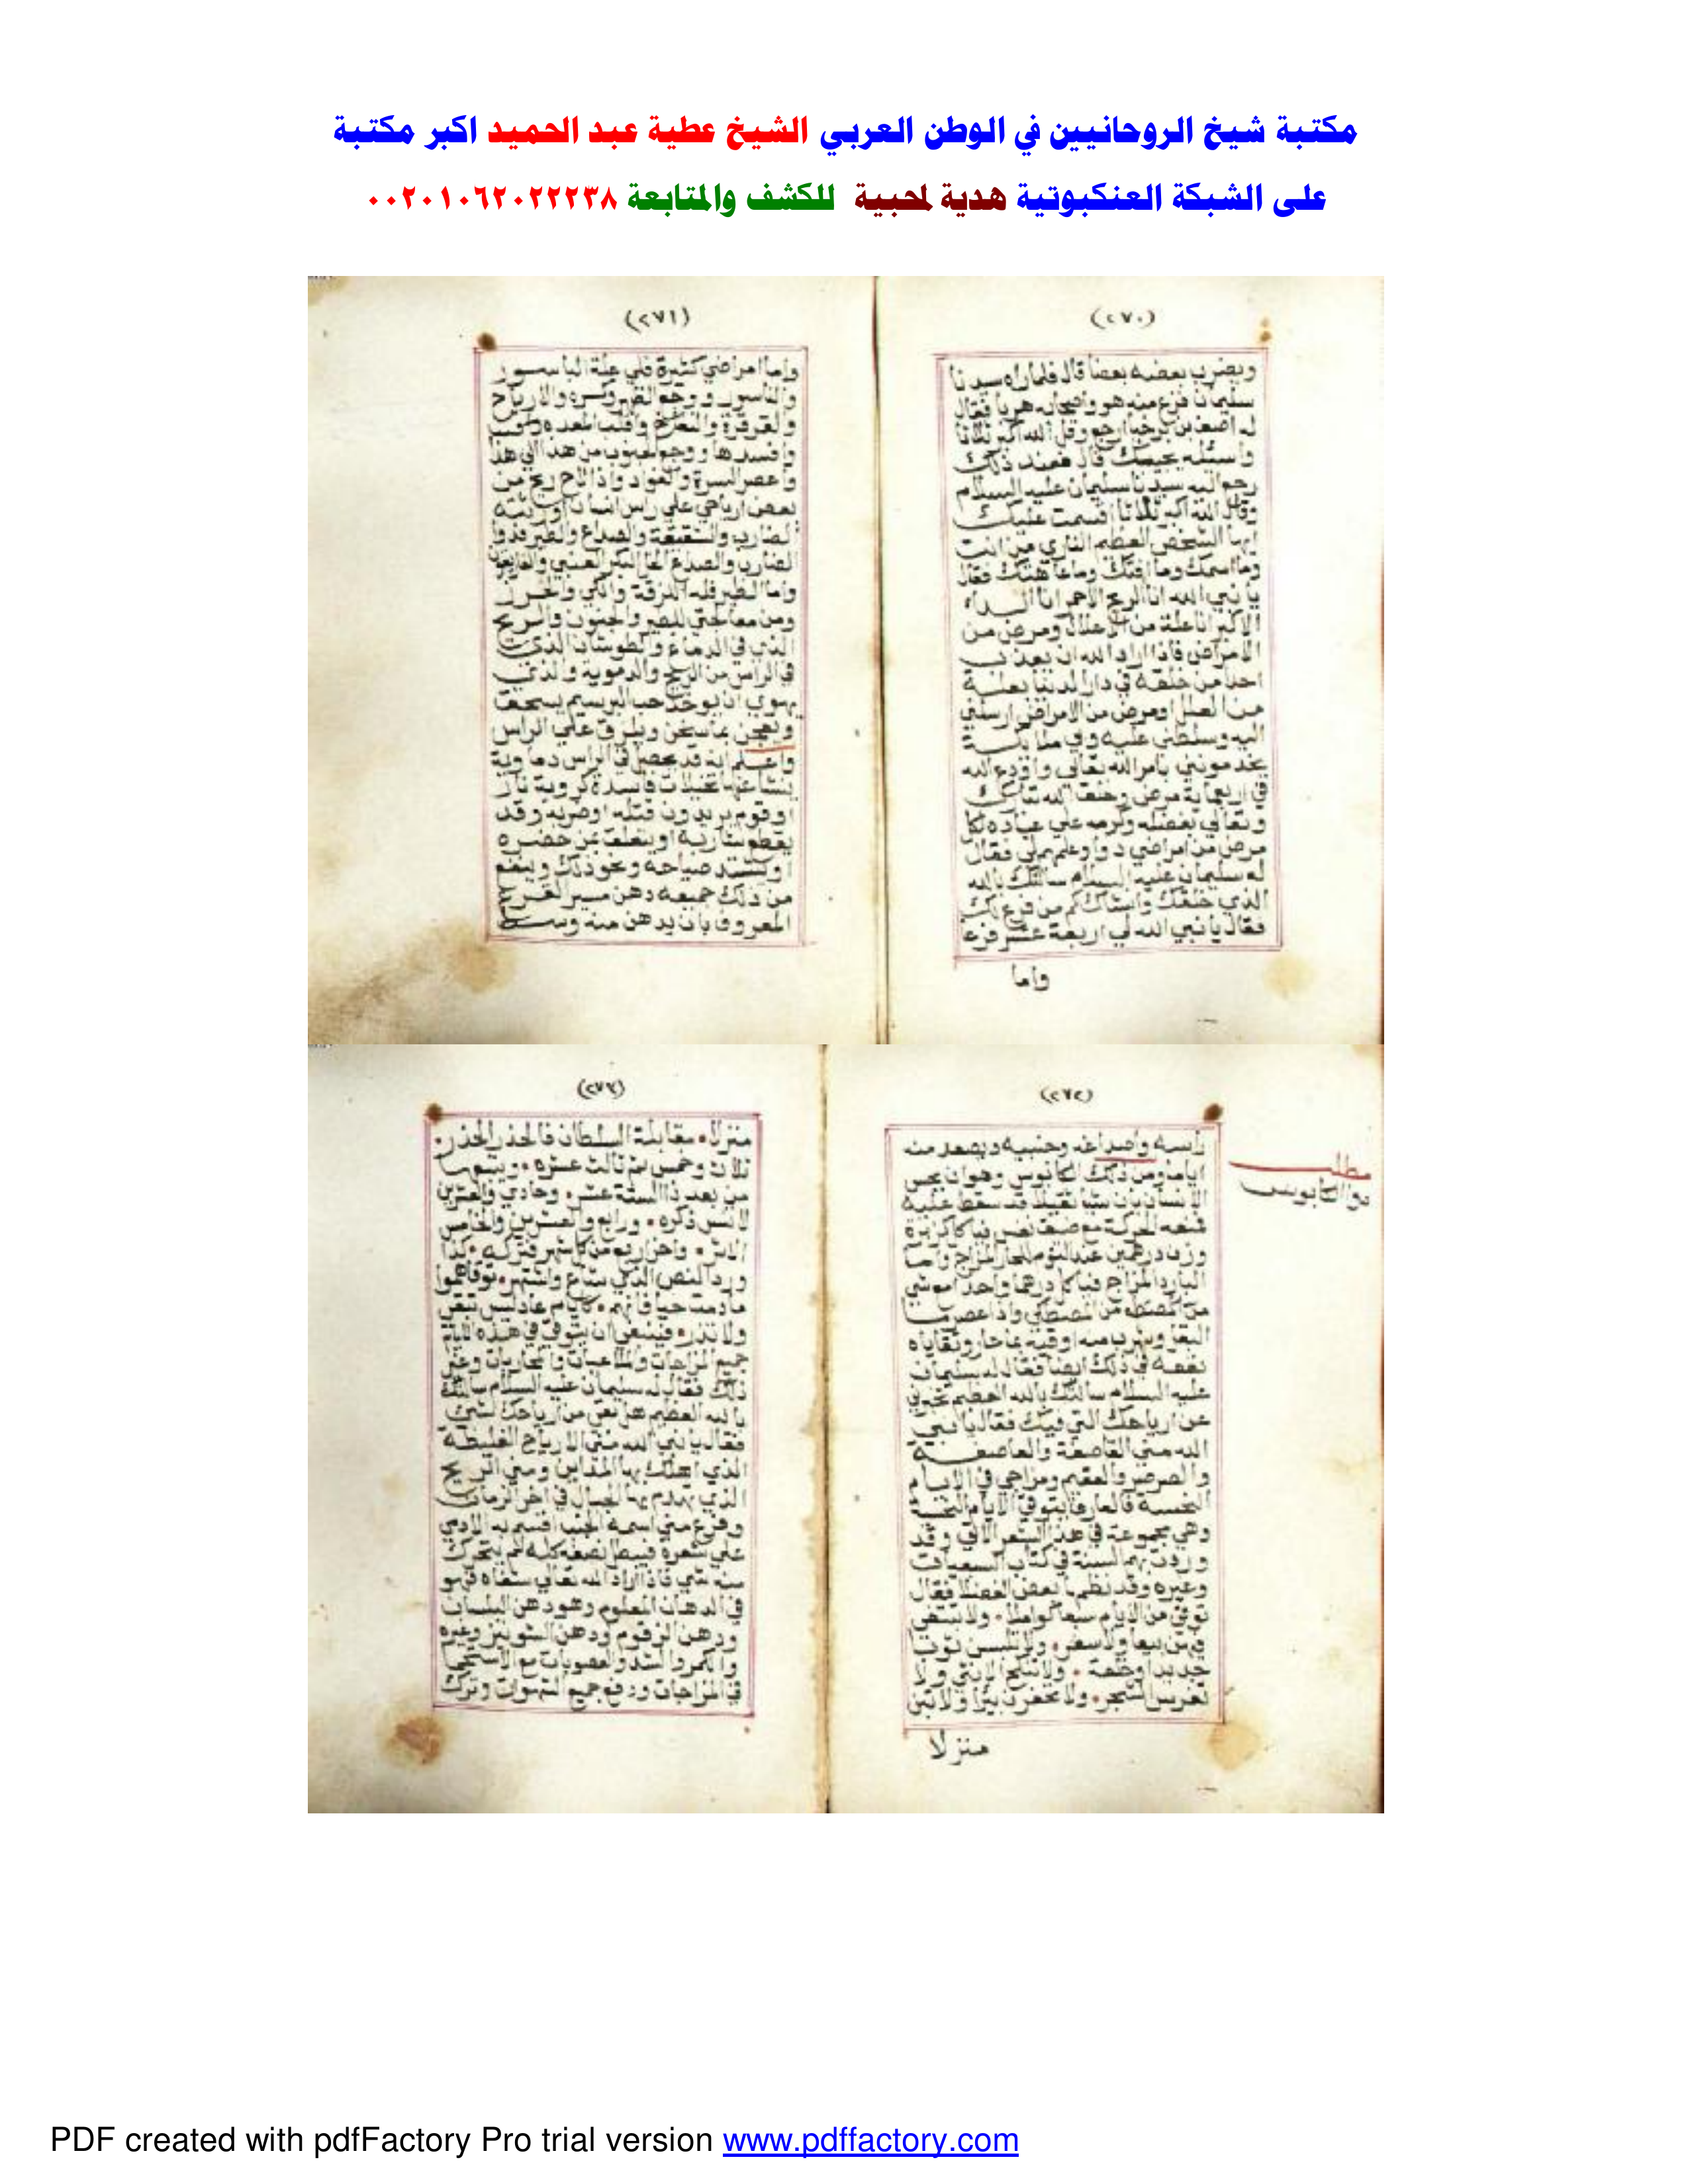 مكتبة شيخ الروحانيين في الوطن العربي الشيخ عطية عبد الحميد اكبر مكتبة
على الشبكة العنكبوتية هدية لمحبية للكشف والمتابعة ٠٠٢٠١٠٦٢٠٢٢٢٣٨
(٢٧٠)
ويضرب بعضه بعضا قال فلما راه سيدنا
سليمان فزع منه هو واصحابه هربا فقال
له اصف بن برخيا ارجع وقل الله اكبر ثلاثا
واسئله يجيبك قال فعند ذلك
رجع اليه سيدنا سليمان عليه السلام
وقال الله اكبر ثلاثا اقسمت عليك
ايها الشخص العظيم الناري من انت
وما اسمك وما افتك وما عاهتك فقال
يا نبي الله انا الريح الاحمر انا الداء
الاكبر انا علة من الاعلال ومرض من
الامراض فاذا اراد الله ان يعذب
احدا من خلقه في دار الدنيا بعلة
من العلل او مرض من الامراض ارسلني
اليه وسلطني عليه وفي
يخدموني بامر الله تعالى واودع الله
في اربعماية مرض وخلق الله تبارك
وتعالى بفضله وكرمه علي عباده لكل
مرض من امراضي دوا وعلم فقال
له سليمان عليه السلام سالتك بالله
الذي خلقك وانشاك كم من فرع لك
فقال يا نبي الله لي اربعة عشر فرعا
واما
(٢٧١)
واما امراضي كثيرة فلي علة الباسور
والناسور ووجع الظهر وكسره والارياح
والقرقرة والنفخ وقلب المعده
وافسدها ووجع الجنوب من هذا الي هذا
واعصر السرة والفواد واذا لاح ريح من
بعض ارياحي علي راس انسان اورثته
الضارب والشقيقة والصداع
الضارب والصداع
واما فله والكي
ومن معالجتي والجنون والريح
الذي في الدماغ الذي
في الراس من الريح والدموية والذي
يهوي ان يوخذ حب البرسيم يسحق
ويعجن بماء سخن ويلزق علي الراس
واعلم انه قد يحصل في الراس دماوية
ينشا عنها تخيلات فاسدة كروية نار
او قوم يريدون قتله او ضربه وقد
يقطع ثيابه او يتعلق بمن حضره
او يشتد صياحه ونحو ذلك وينفع
من ذلك جميعه دهن القرع
المعروف بان يدهن منه وسط
(٢٧٢)
مطلب
دوا الكابوس
راسه واصداغه وجنبيه ويصعد منه
اياما ومن ذلك الكابوس وهو ان يحس
الانسان بان شيا ثقيلا قد سقط عليه
فمنعه الحركة مع ضيق نفس فياكل كزبرة
وزن درهمين عند النوم للحار المزاج واما
البارد المزاج فياكل درهما واحد
من المصطكي واذا عصر
وشرب منه اوقيه بماء حار وتقاياه
نفعه في ذلك ايضا فقال له سليمان
عليه السلام سالتك بالله العظيم تخبرني
عن ارياحك التي فيك فقال يا نبي
الله مني القاصفة والعاصفة
والصرصر والعقيم ومزاجي في الايام
النحسة فالعارف يتوقي الايام النحسة
وهي مجموعة في هذا الشعر الاتي وقد
وردت بهم السنة في كتاب السبعيات
وغيره وقد نظمها بعض الفضلا فقال
توقي من الايام سبعا كواملا • ولا تبتغي
فيهن بيعا ولا سفر • ولا تلبس ثوبا
جديدا وخلعة • ولا تنكح الانثي ولا
تغرس الشجر • ولا تحفرن بيرا ولا تبن
منزلا
(٢٧٣)
منزلا • مقابلة السلطان فالحذر الحذر •
ثلاث وخمس ثم ثالث عشره • ويتبعها
من بعد ذا الستة عشر • وحادي والعشرين
لا تنس ذكره • ورابع والعشرين والخامس
الاثر • واخر اربع من كل شهر فتركه • كذا
ورد النص الذي شاع واشتهر • توقاهموا
ما دمت حيا فانهم • كايام عاد ليس تبقي
ولا تذر • فينبغي ان يتوقي في هذه الايام
جميع المزاجات والملاعبات والمحاربات وغير
ذلك فقال له سليمان عليه السلام سالتك
بالله العظيم هل بقي من ارياحك شي
فقال يا نبي الله مني الارياح الغليظة
الذي اهلك بها المداين ومني الريح
الذي يهدم بها الجبال في اخر الزمان
وفرع مني اسمه الجنب اقسم به الادمي
علي شعره فيبطل نصفه كله لم يتحرك
منه شي فاذا اراد الله تعالي شفاه فهو
في الدهان المعلوم وهو دهن البلسان
ودهن الزقوم ودهن الشونيز وغيره
والشد والعصوبات مع
في المزاجات ودفع جميع الشهوات وترك
PDF created with pdfFactory Pro trial version www.pdffactory.com